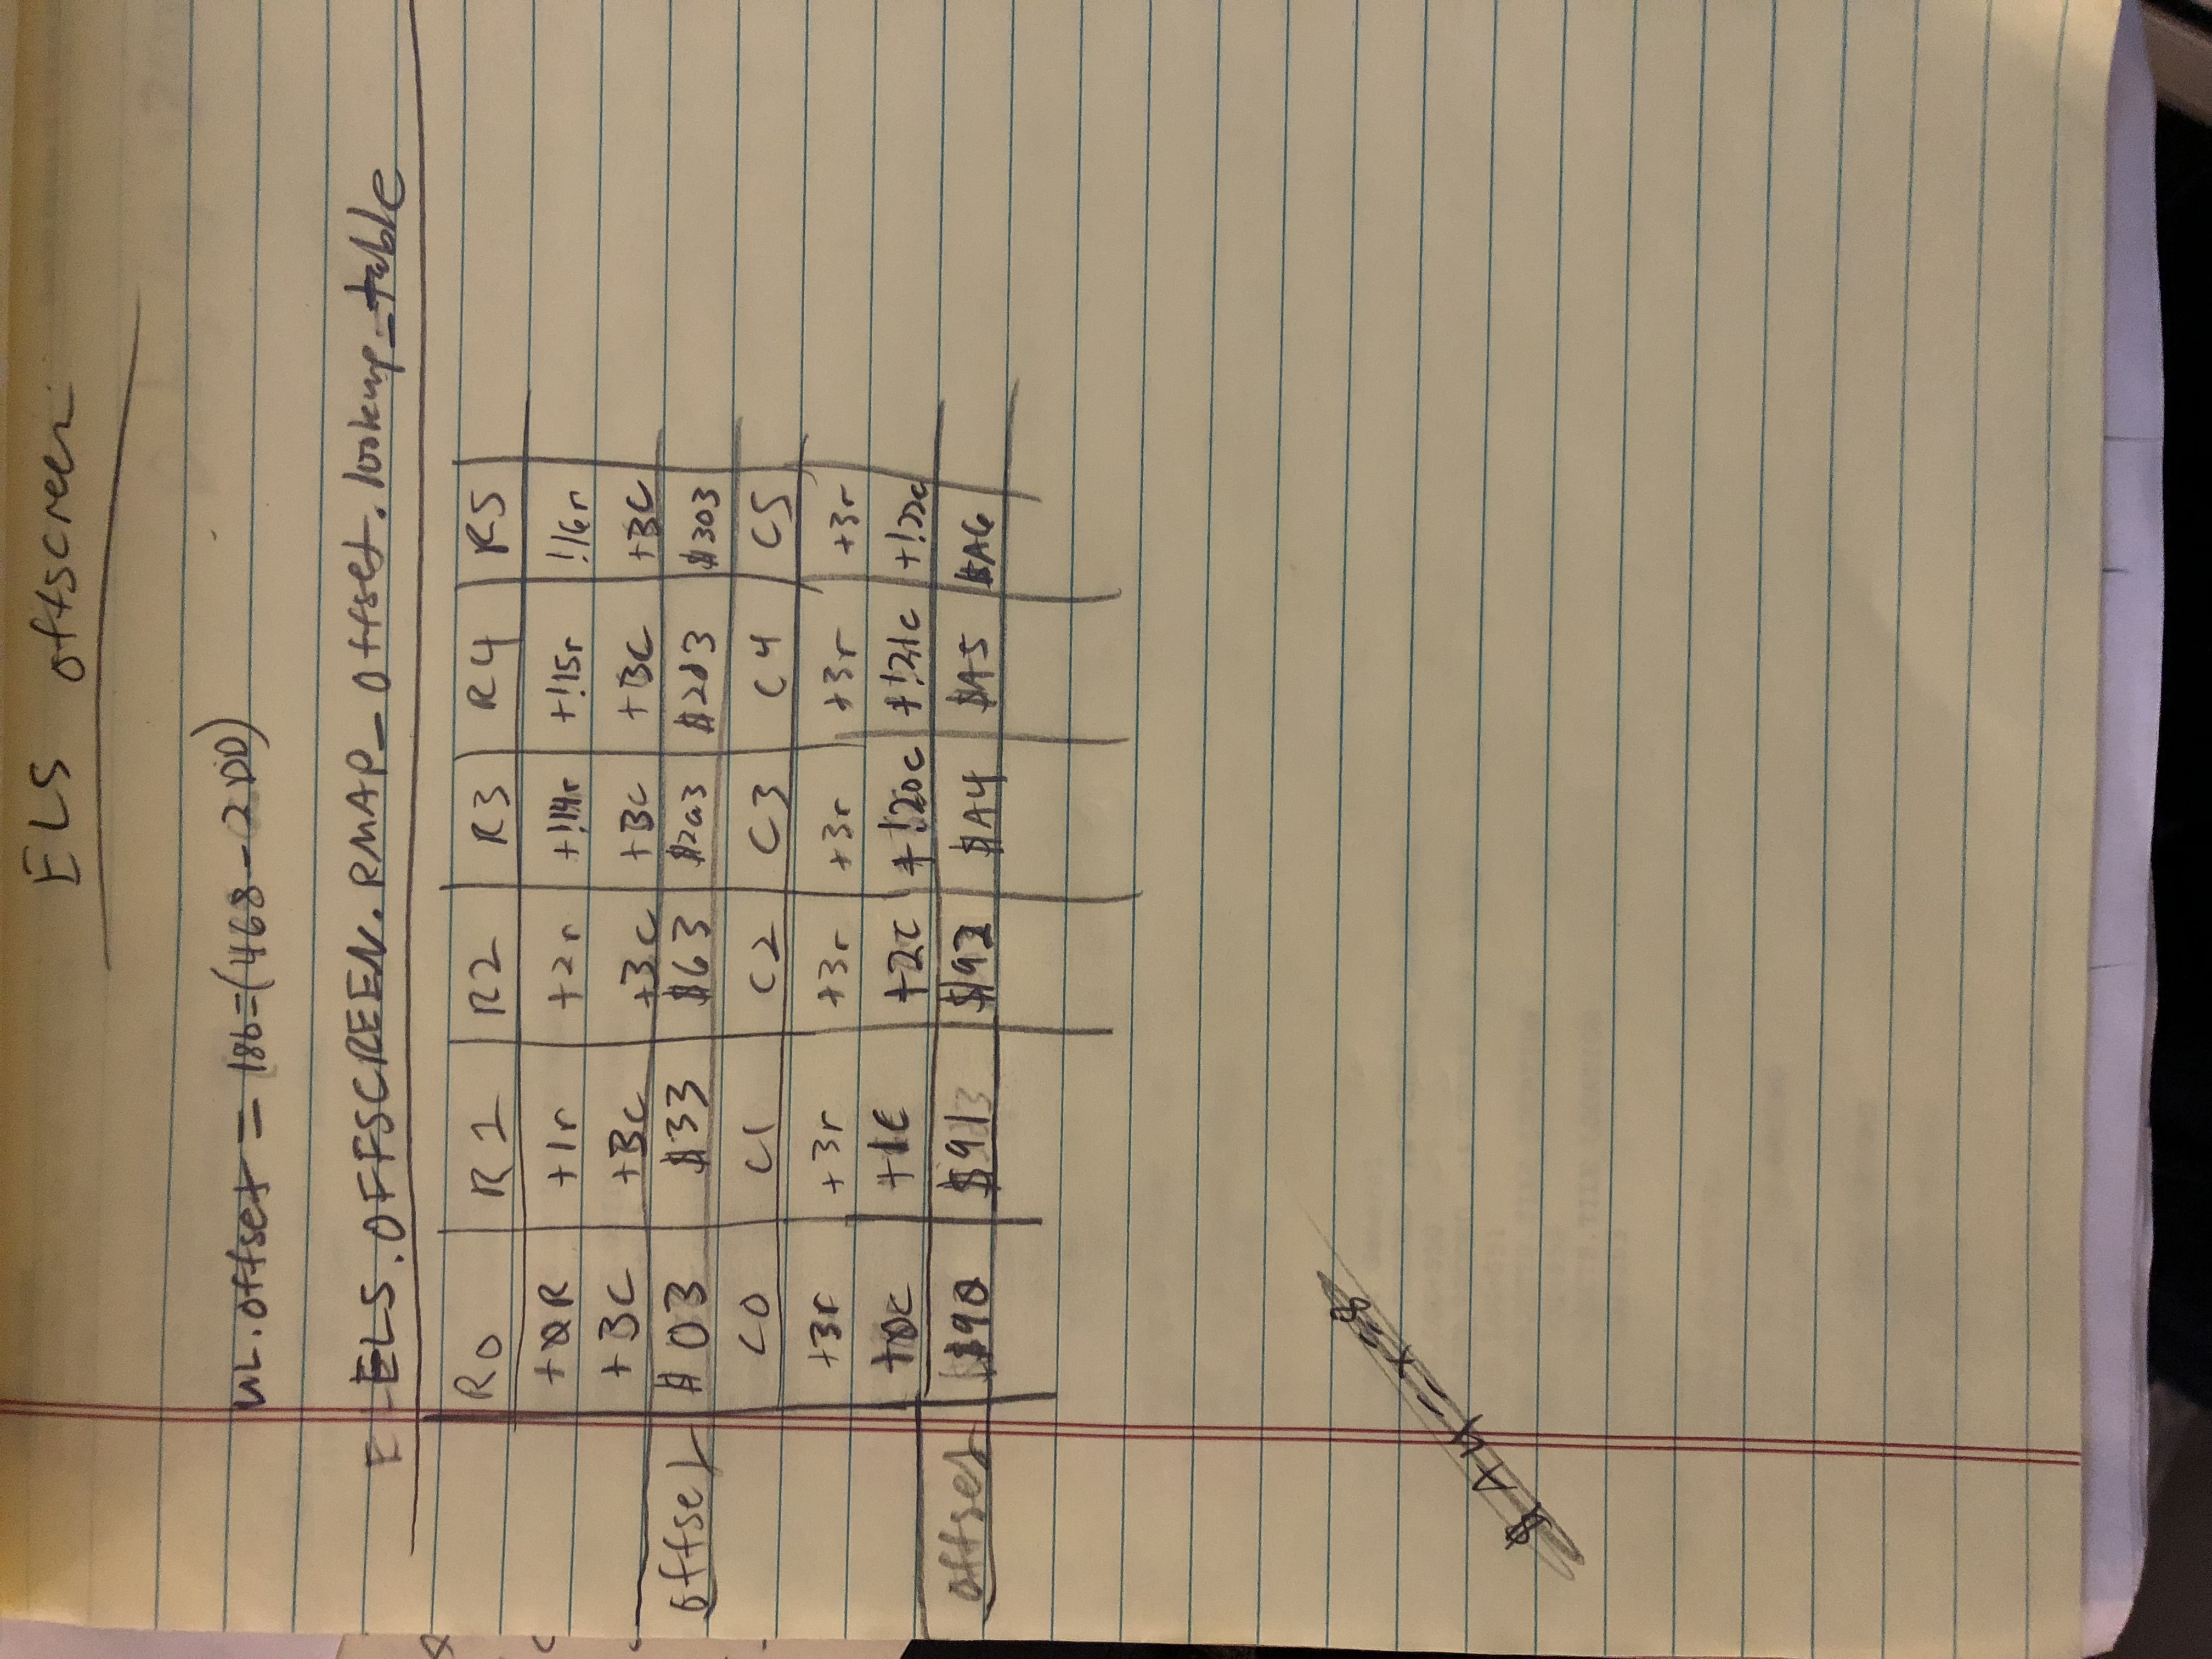 ELS offscreen
UL.offset = 18b=(468-2DD)
ELS.OFFSCREEN.RMAP_offset.lookup_table
R0 R1 R2 R3 R4 R5
+0R +1r +2r +!14r +!15r !16r
+3C +3c +3c +3c +3C +3C
offset $03 $33 $63 $2a3 $2d3 $303
C0 C1 C2 C3 C4 C5
+3r +3r +3r +3r +3r +3r
+0c +1c +2c +!20c +!21c +!22c
offset $90 $91 $92 $A4 $A5 $A6